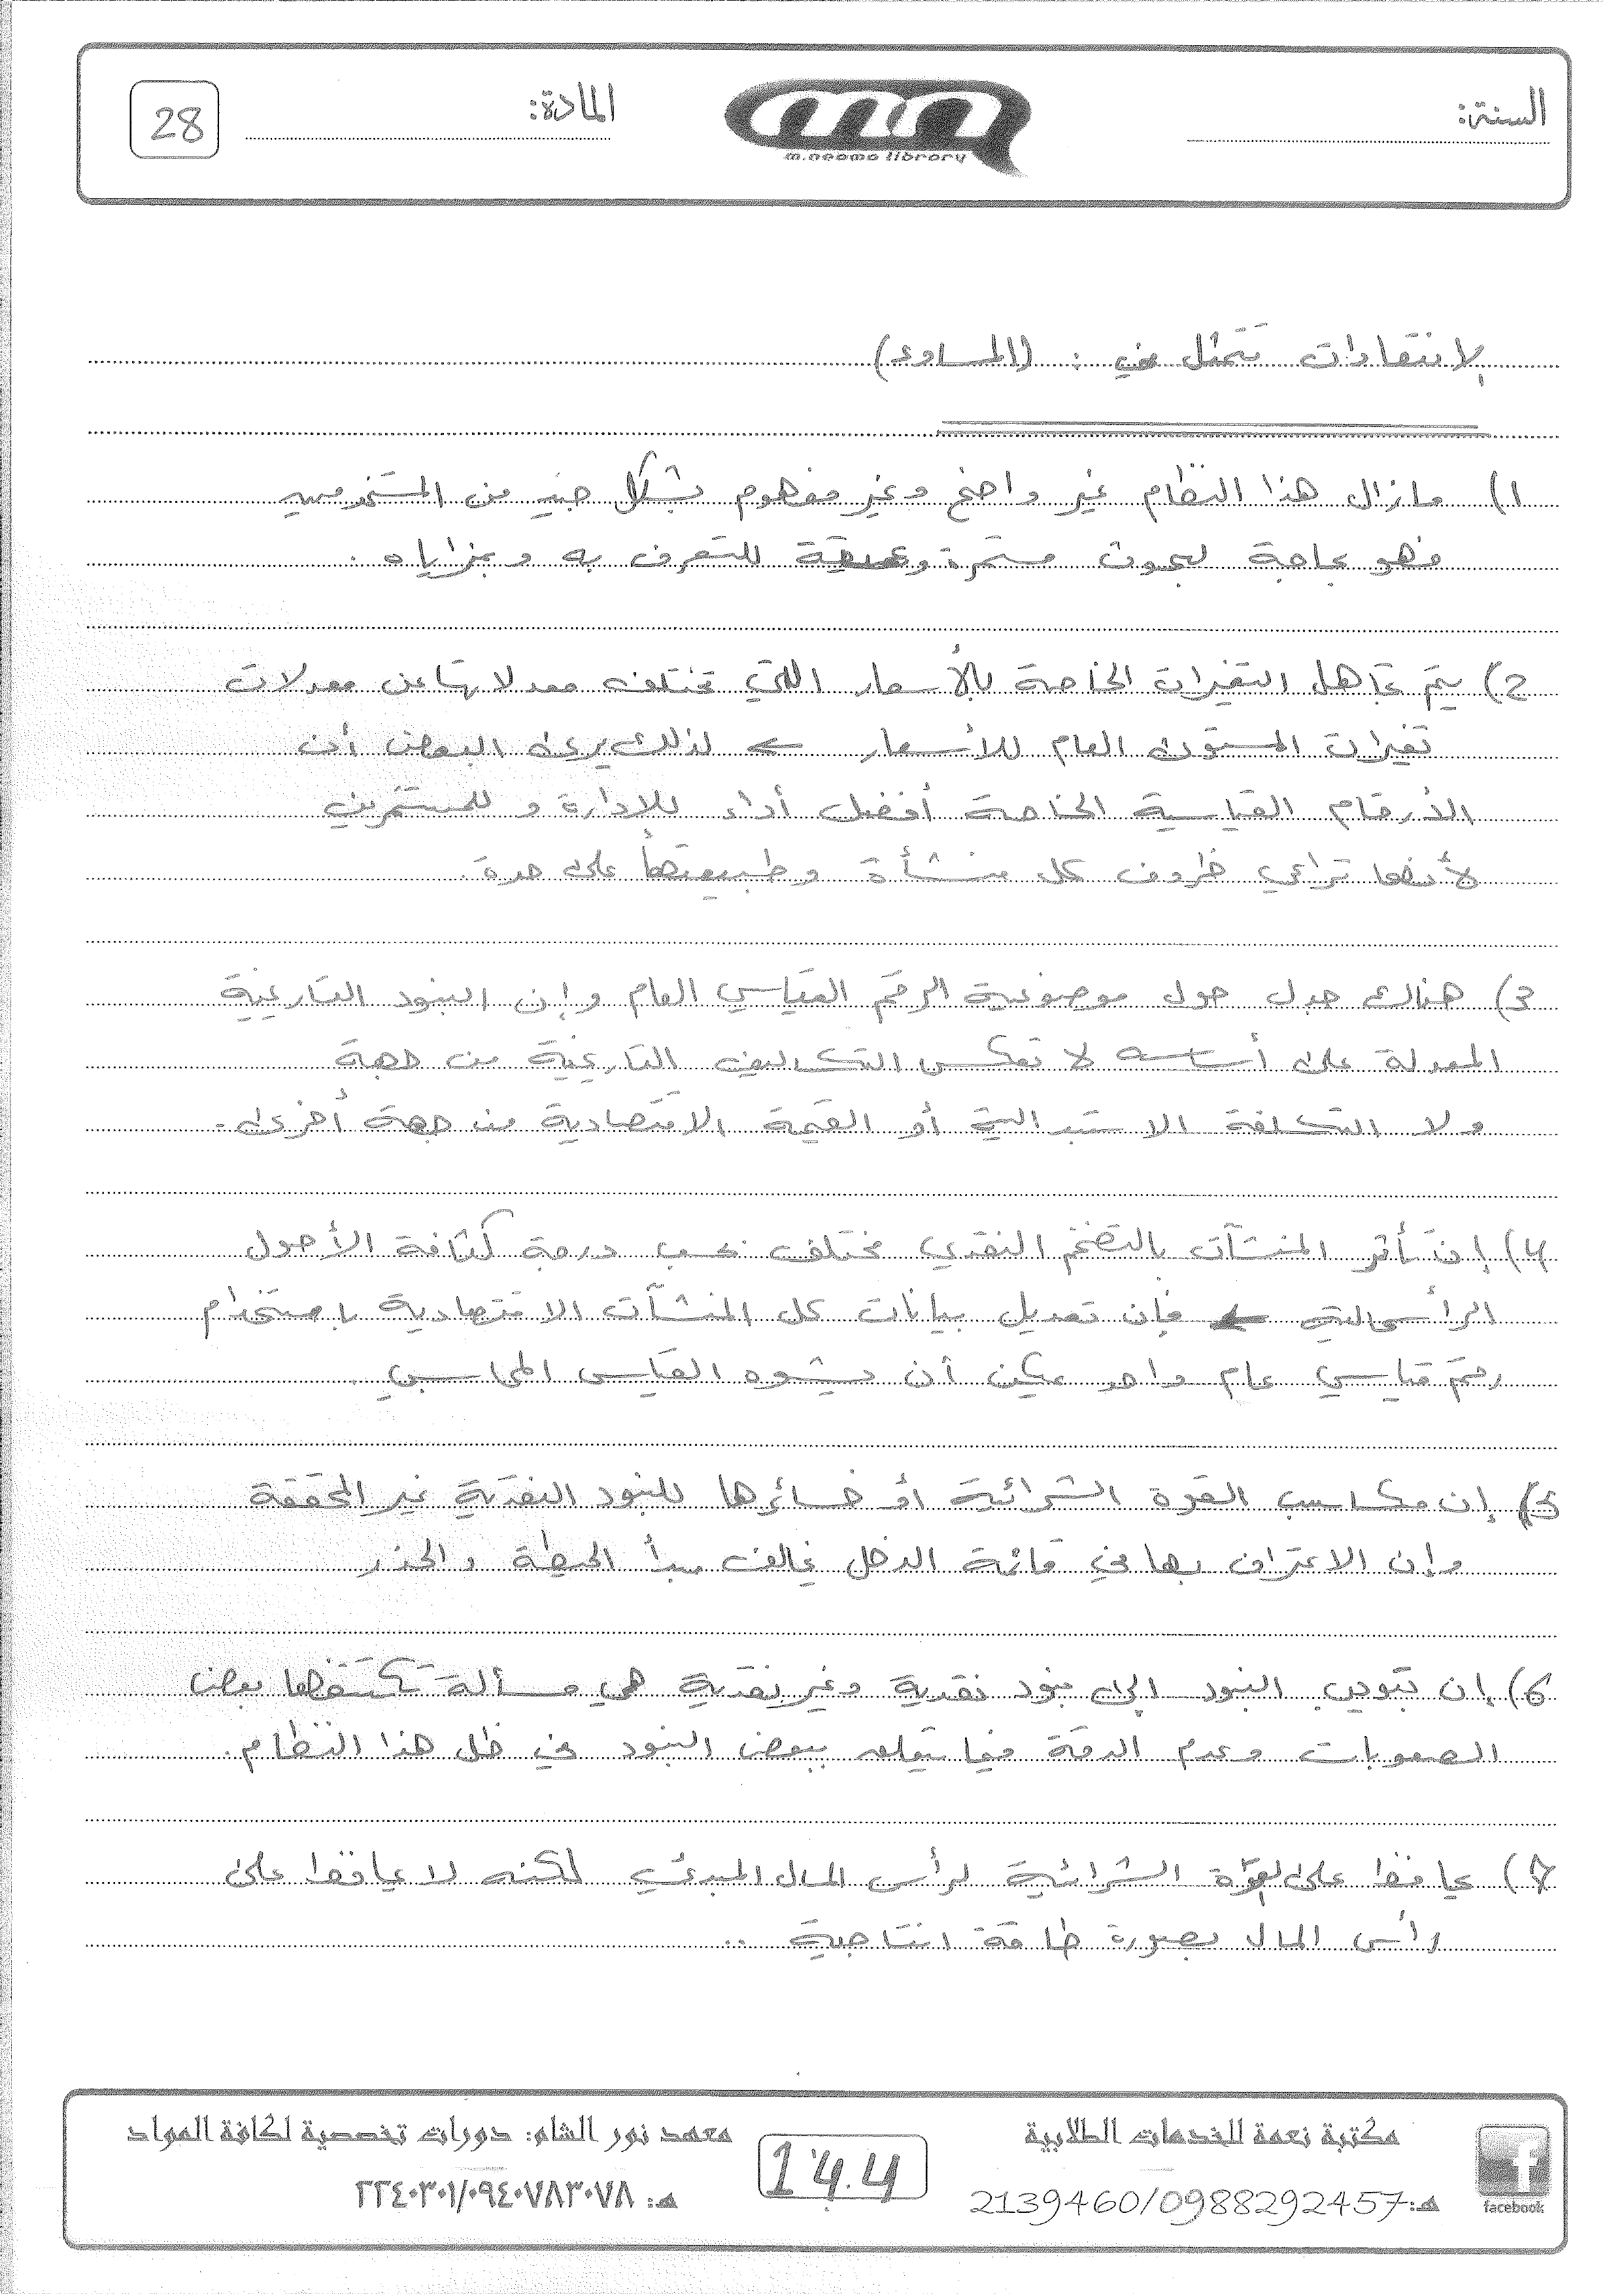 السنة:
m.neama library
المادة:
28
لانتقادات تتمثل في : (المساوئ)
1) مازال هذا النظام غير واضح وغير مفهوم بشكل جيد من المستخدمين
فهو بحاجة لبحوث مستمرة وعميقة للتعرف به وبمزاياه .
2) يتم تجاهل التغيرات الخاصة بالأسعار اللتي تختلف معدلاتها عن معدلات
تغيرات المستوى العام للأسعار ← لذلك يرى البعض أن
الأرقام القياسية الخاصة أفضل أداء للإدارة و للمستثمرين
لأنها تراعي ظروف كل منشأة وطبيعتها على حدة .
3) هنالك جدل حول موضوعية الرقم القياسي العام وإن البنود التاريخية
المعدلة على أساسه لا تعكس التكاليف التاريخية من جهة
ولا التكلفة الاستبدالية أو القيمة الاقتصادية من جهة أخرى .
4) إن تأثر المنشآت بالتضخم النقدي مختلف بحسب درجة كثافة الأصول
الرأسمالية ← فإن تعديل بيانات كل المنشآت الاقتصادية باستخدام
رقم قياسي عام واحد يمكن أن يشوه القياس المحاسبي .
5) إن مكاسب القوة الشرائية أو خسائرها للبنود النقدية غير المحققة
وإن الاعتراف بها في قائمة الدخل يخالف مبدأ الحيطة والحذر
6) إن تبويب البنود إلى بنود نقدية وغير نقدية هي مسألة تكتنفها بعض
الصعوبات وعدم الدقة فيما يتعلق ببعض البنود في ظل هذا النظام .
7) يحافظ على القوة الشرائية لرأس المال المبدئي لكنه لا يحافظ على
رأس المال بصورة طاقة انتاجية ..
facebook
مكتبة نعمة للخدمات الطلابية
هـ: 2139460/0988292457
معهد نور الشام: دورات تخصصية لكافة المواد
هـ: ٢٢٤٠٣٠١/٠٩٤٠٧٨٣٠٧٨